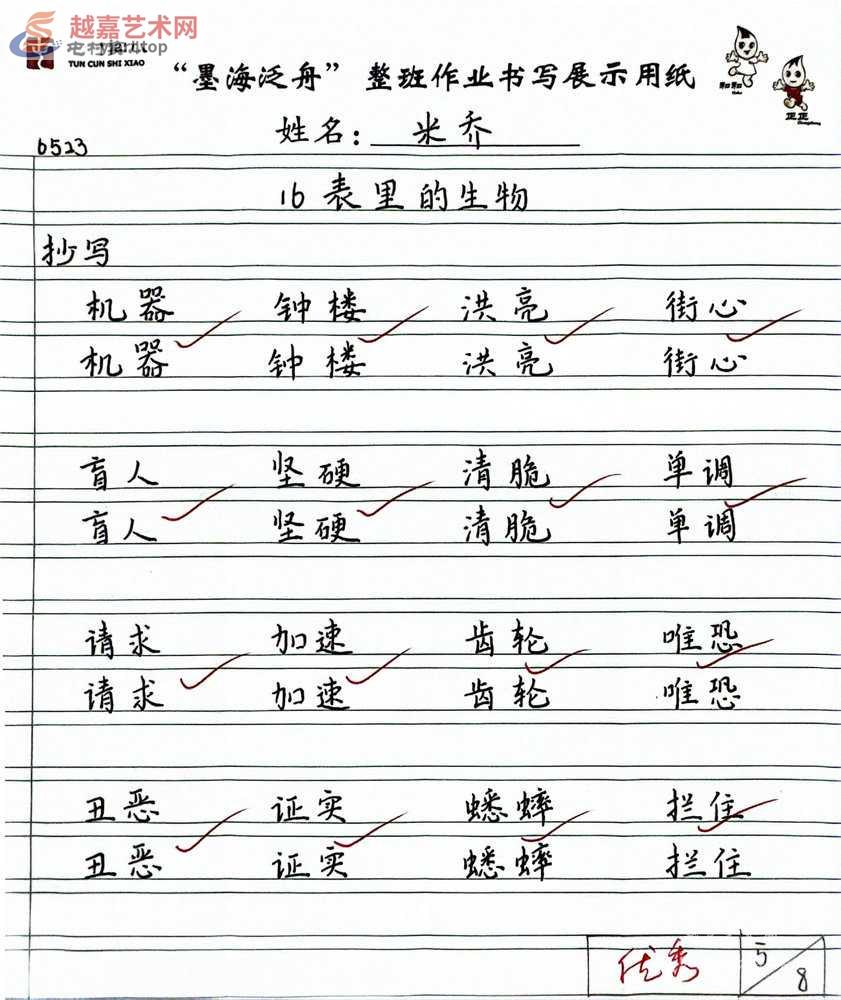 越嘉艺术网
yjart.top
TUN CUN SHI XIAO
“墨海泛舟” 整班作业书写展示用纸
和和
正正
姓名: 米乔
6523
16 表里的生物
抄写
机器 钟楼 洪亮 街心
机器 钟楼 洪亮 街心
盲人 坚硬 清脆 单调
盲人 坚硬 清脆 单调
请求 加速 齿轮 唯恐
请求 加速 齿轮 唯恐
丑恶 证实 蟋蟀 拦住
丑恶 证实 蟋蟀 拦住
优秀 5/8